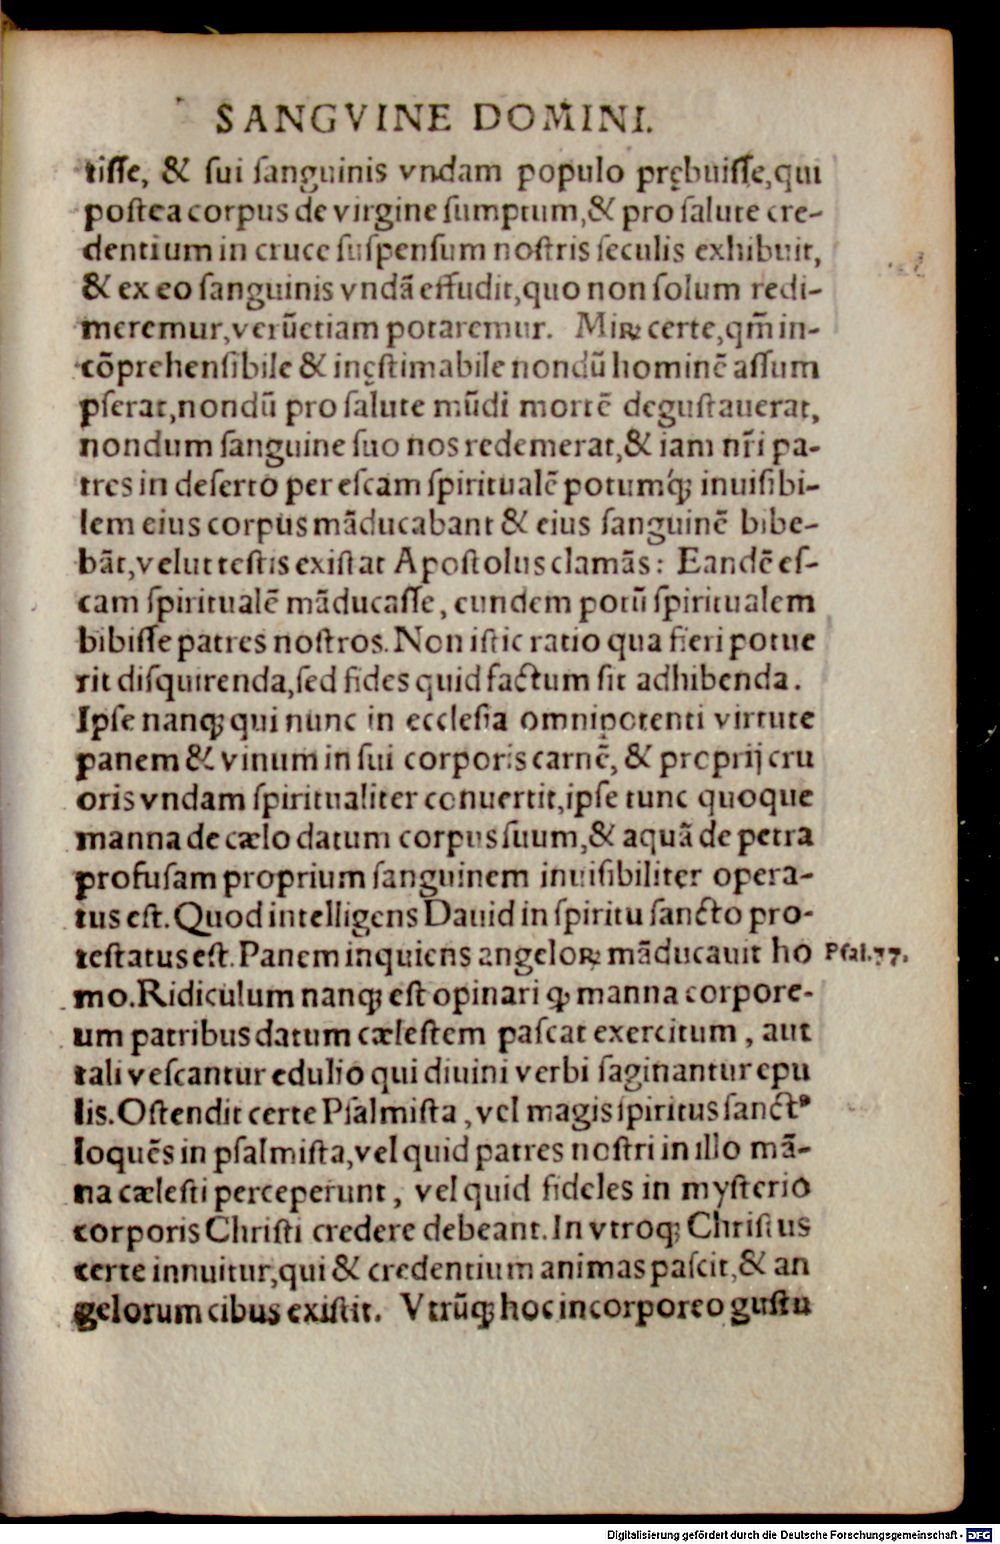 SANGVINE DOMINI.
tiſſe, & ſui ſanguinis vndam populo prębuiſſe, qui
poſtea corpus de virgine ſumptum, & pro ſalute cre-
dentium in cruce ſuſpenſum noſtris ſeculis exhibuit,
& ex eo ſanguinis vndã effudit, quo non ſolum redi-
meremur, verũ etiam potaremur. Miꝝ certe, qm̃ in-
cõprehenſibile & inęſtimabile nondũ hominẽ aſſum
pſerat, nondũ pro ſalute mũdi mortẽ deguſtauerat,
nondum ſanguine ſuo nos redemerat, & iam nr̃i pa-
tres in deſerto per eſcam ſpiritualẽ potumq́; inuiſibi-
lem eius corpus mãducabant & eius ſanguinẽ bibe-
bãt, velut teſtis exiſtat Apoſtolus clamãs: Eandẽ eſ-
cam ſpiritualẽ mãducaſſe, eundem potũ ſpiritualem
bibiſſe patres noſtros. Non iſtic ratio qua fieri potue
rit diſquirenda, ſed fides quid factum ſit adhibenda.
Ipſe nanq; qui nunc in eccleſia omnipotenti virtute
panem & vinum in ſui corporis carnẽ, & proprij cru
oris vndam ſpiritualiter conuertit, ipſe tunc quoque
manna de cælo datum corpus ſuum, & aquã de petra
profuſam proprium ſanguinem inuiſibiliter opera-
tus eſt. Quod intelligens Dauid in ſpiritu ſancto pro-
teſtatus eſt. Panem inquiens angeloꝝ mãducauit ho
Pſal.77.
mo. Ridiculum nanq; eſt opinari ꝙ manna corpore-
um patribus datum cæleſtem paſcat exercitum, aut
tali veſcantur edulio qui diuini verbi ſaginantur epu
lis. Oſtendit certe Pſalmiſta, vel magis ſpiritus ſanctꝰ
loquẽs in pſalmiſta, vel quid patres noſtri in illo mã-
na cæleſti perceperunt, vel quid fideles in myſterio
corporis Chriſti credere debeant. In vtroq; Chriſtus
certe innuitur, qui & credentium animas paſcit, & an
gelorum cibus exiſtit. Vtrũq; hoc incorporeo guſtu
Digitalisierung gefördert durch die Deutsche Forschungsgemeinschaft - DFG